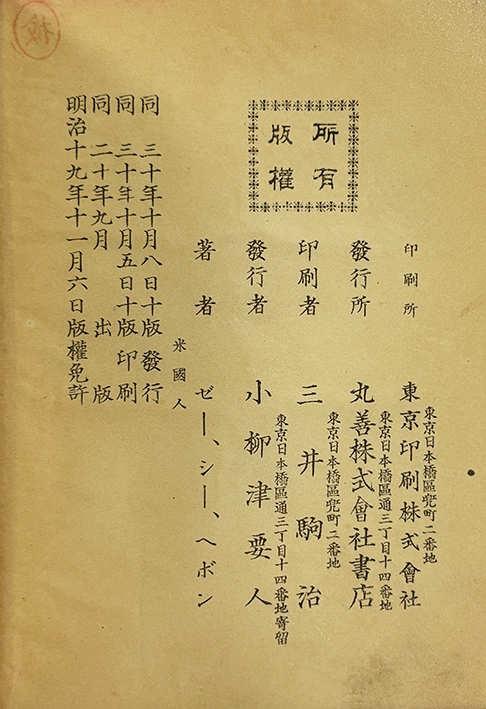 明治十九年十一月六日版權免許
同 二十年九月 出版
同 三十年十月五日十版印刷
同 三十年十月八日十版發行
版權
所有
米國人
著者 ゼー、シー、ヘボン
發行者 小柳津要人
東京日本橋區通三丁目十四番地寄留
印刷者 三井駒治
東京日本橋區兜町二番地
發行所 丸善株式會社書店
東京日本橋區通三丁目十四番地
印刷所 東京印刷株式會社
東京日本橋區兜町二番地